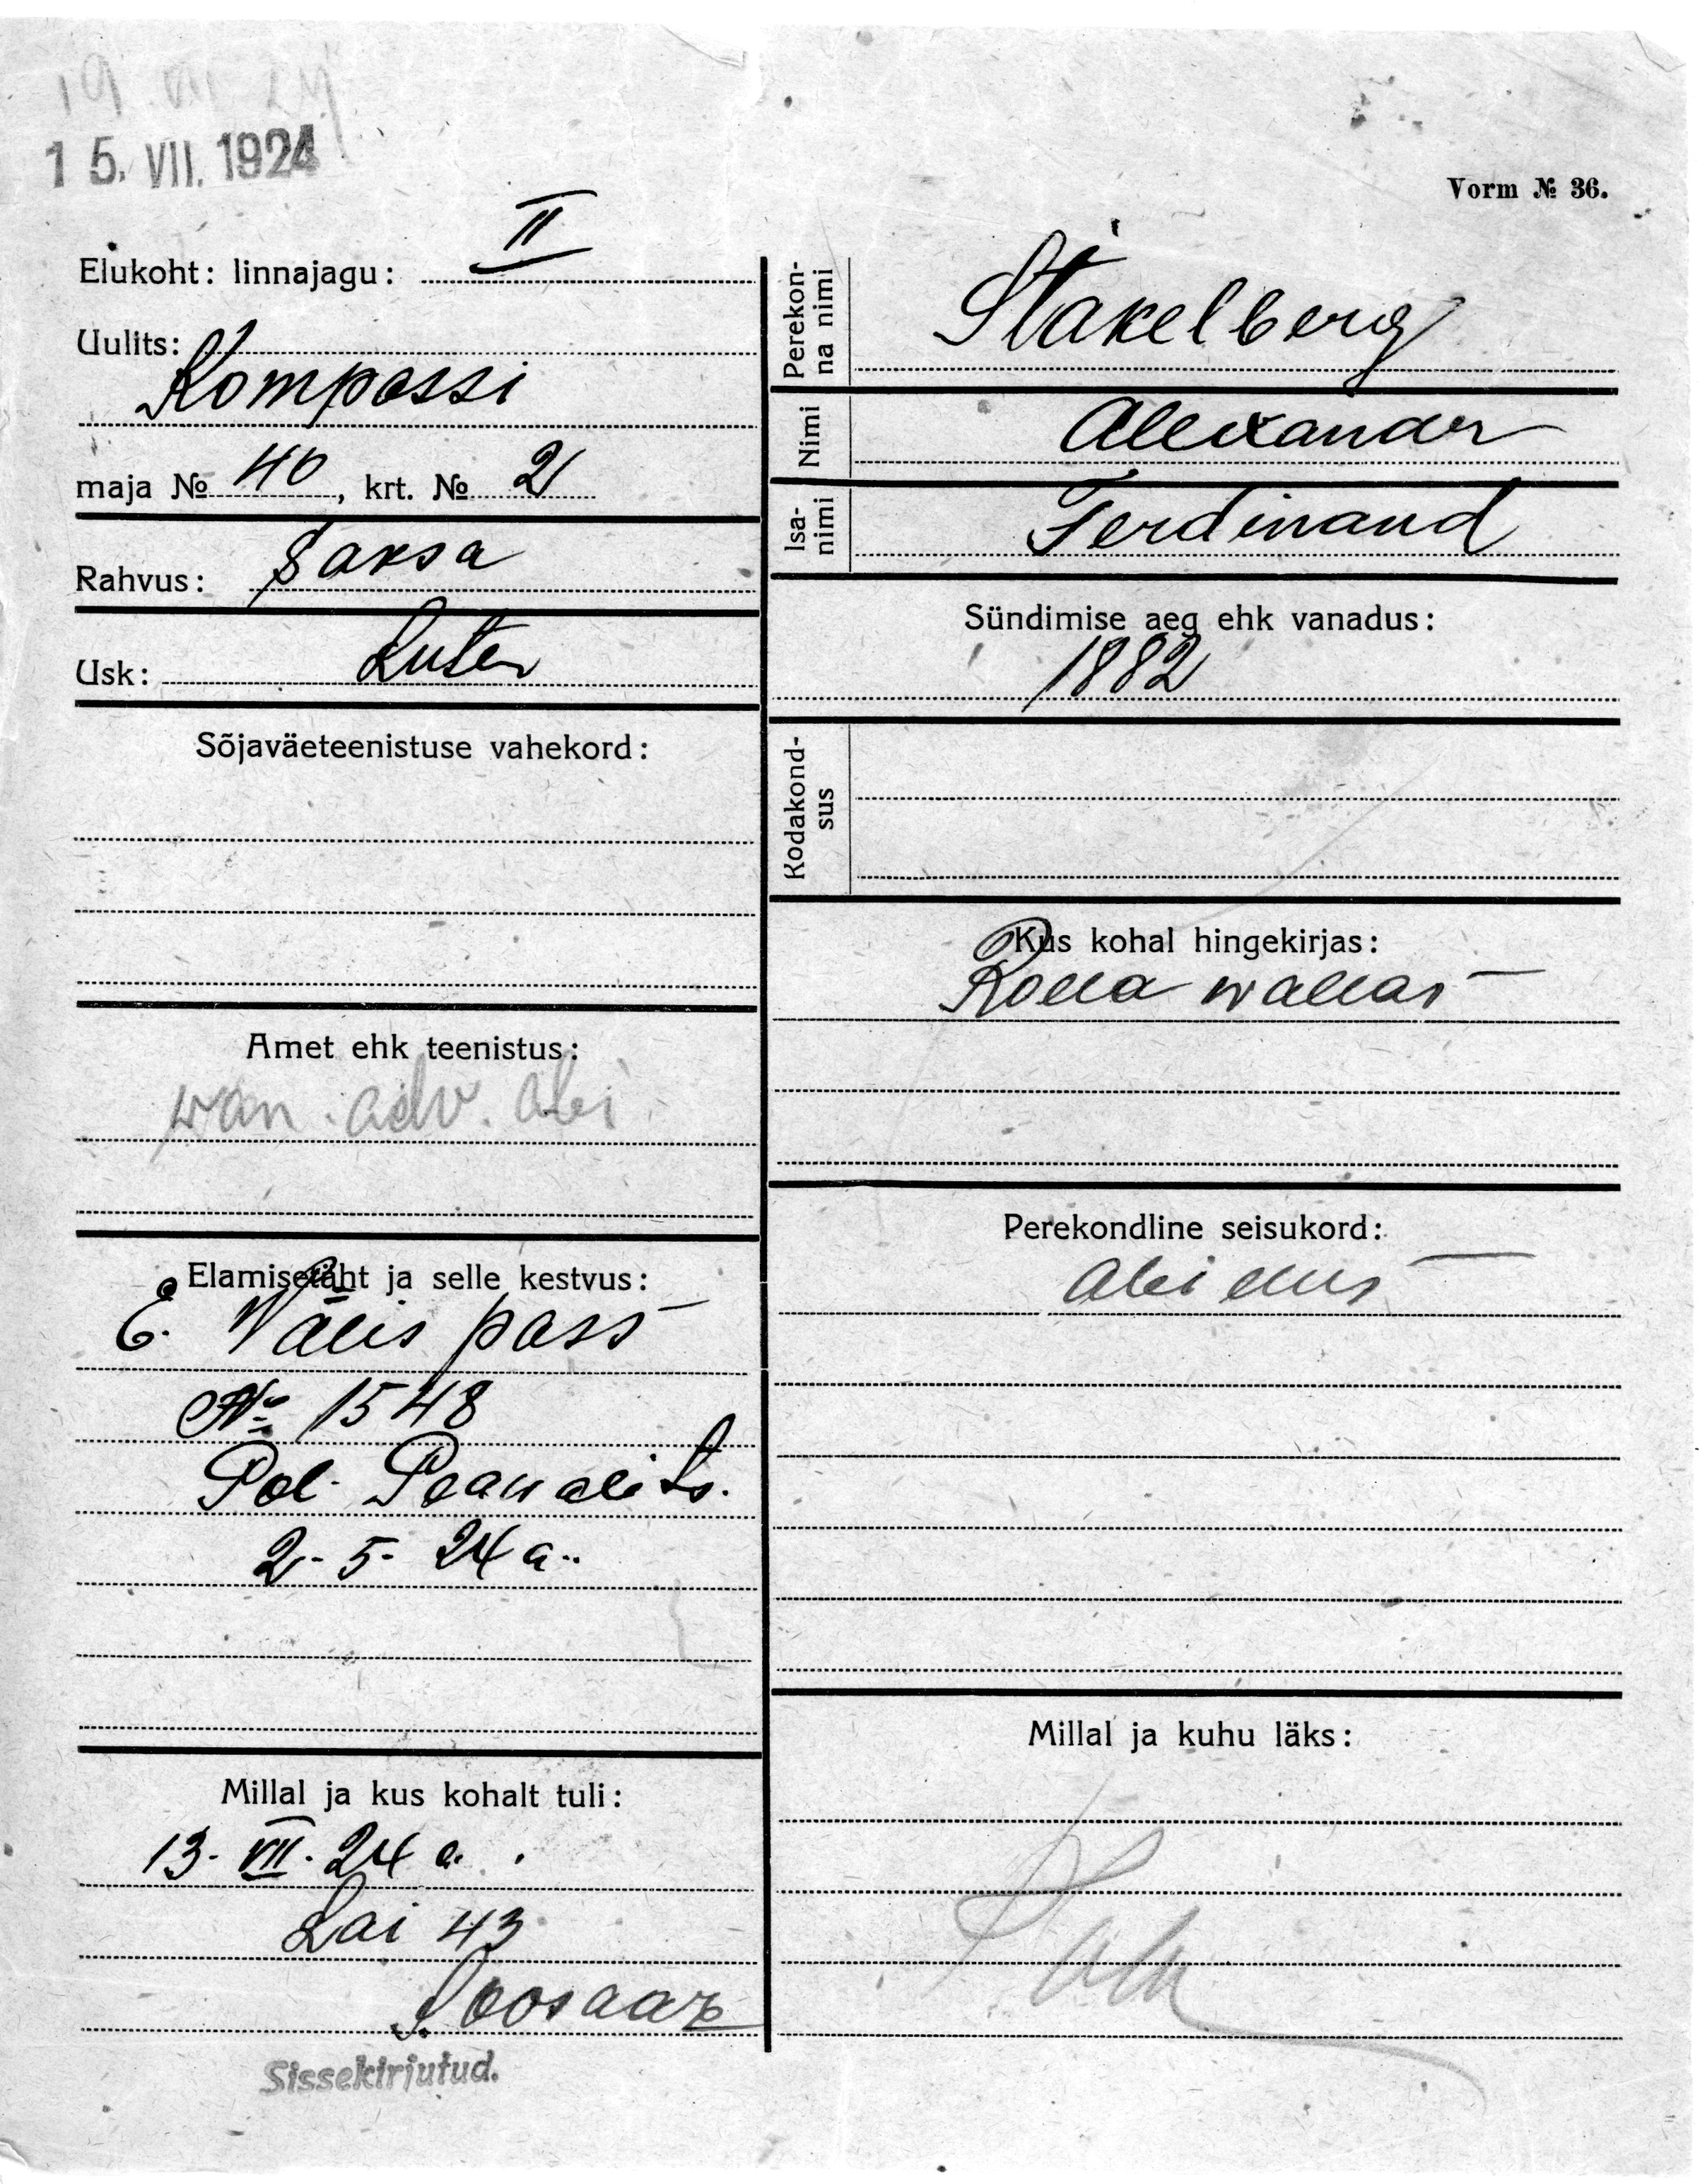 19 VII 24
15. VII. 1924
Vorm № 36.
Elukoht: linnajagu: II
Uulits:
Kompassi
maja № 40, krt. № 2
Rahvus: Saksa
Usk: Luter
Sõjaväeteenistuse vahekord:
Amet ehk teenistus:
wan. adv. abi
Elamisetäht ja selle kestvus:
E. Wälis pass
№ 1548
Pol. Peawalits.
2-5-24 a.
Millal ja kus kohalt tuli:
13. VII. 24 a.
Lai 43
Soosaar
Sissekirjutud.
Perekonna nimi
Stakelberg
Nimi
Alexander
Isanimi
Ferdinand
Sündimise aeg ehk vanadus:
1882
Kodakondsus
Kus kohal hingekirjas:
Roela wallas
Perekondline seisukord:
Abielus
Millal ja kuhu läks: